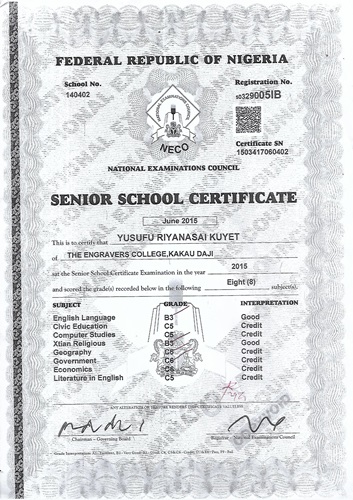 FEDERAL REPUBLIC OF NIGERIA
School No.
140402
Registration No.
50329005IB
Certificate SN
1503417060402
NECO
NATIONAL EXAMINATIONS COUNCIL
SENIOR SCHOOL CERTIFICATE
June 2015
This is to certify that YUSUFU RIYANASAI KUYET
of THE ENGRAVERS COLLEGE,KAKAU DAJI
sat the Senior School Certificate Examination in the year 2015
and scored the grade(s) recorded below in the following Eight (8) subject(s).
SUBJECT GRADE INTERPRETATION
English Language B3 Good
Civic Education C5 Credit
Computer Studies C5 Credit
Xtian Religious B3 Good
Geography C6 Credit
Government C6 Credit
Economics C6 Credit
Literature in English C5 Credit
Chairman - Governing Board
Registrar - National Examinations Council